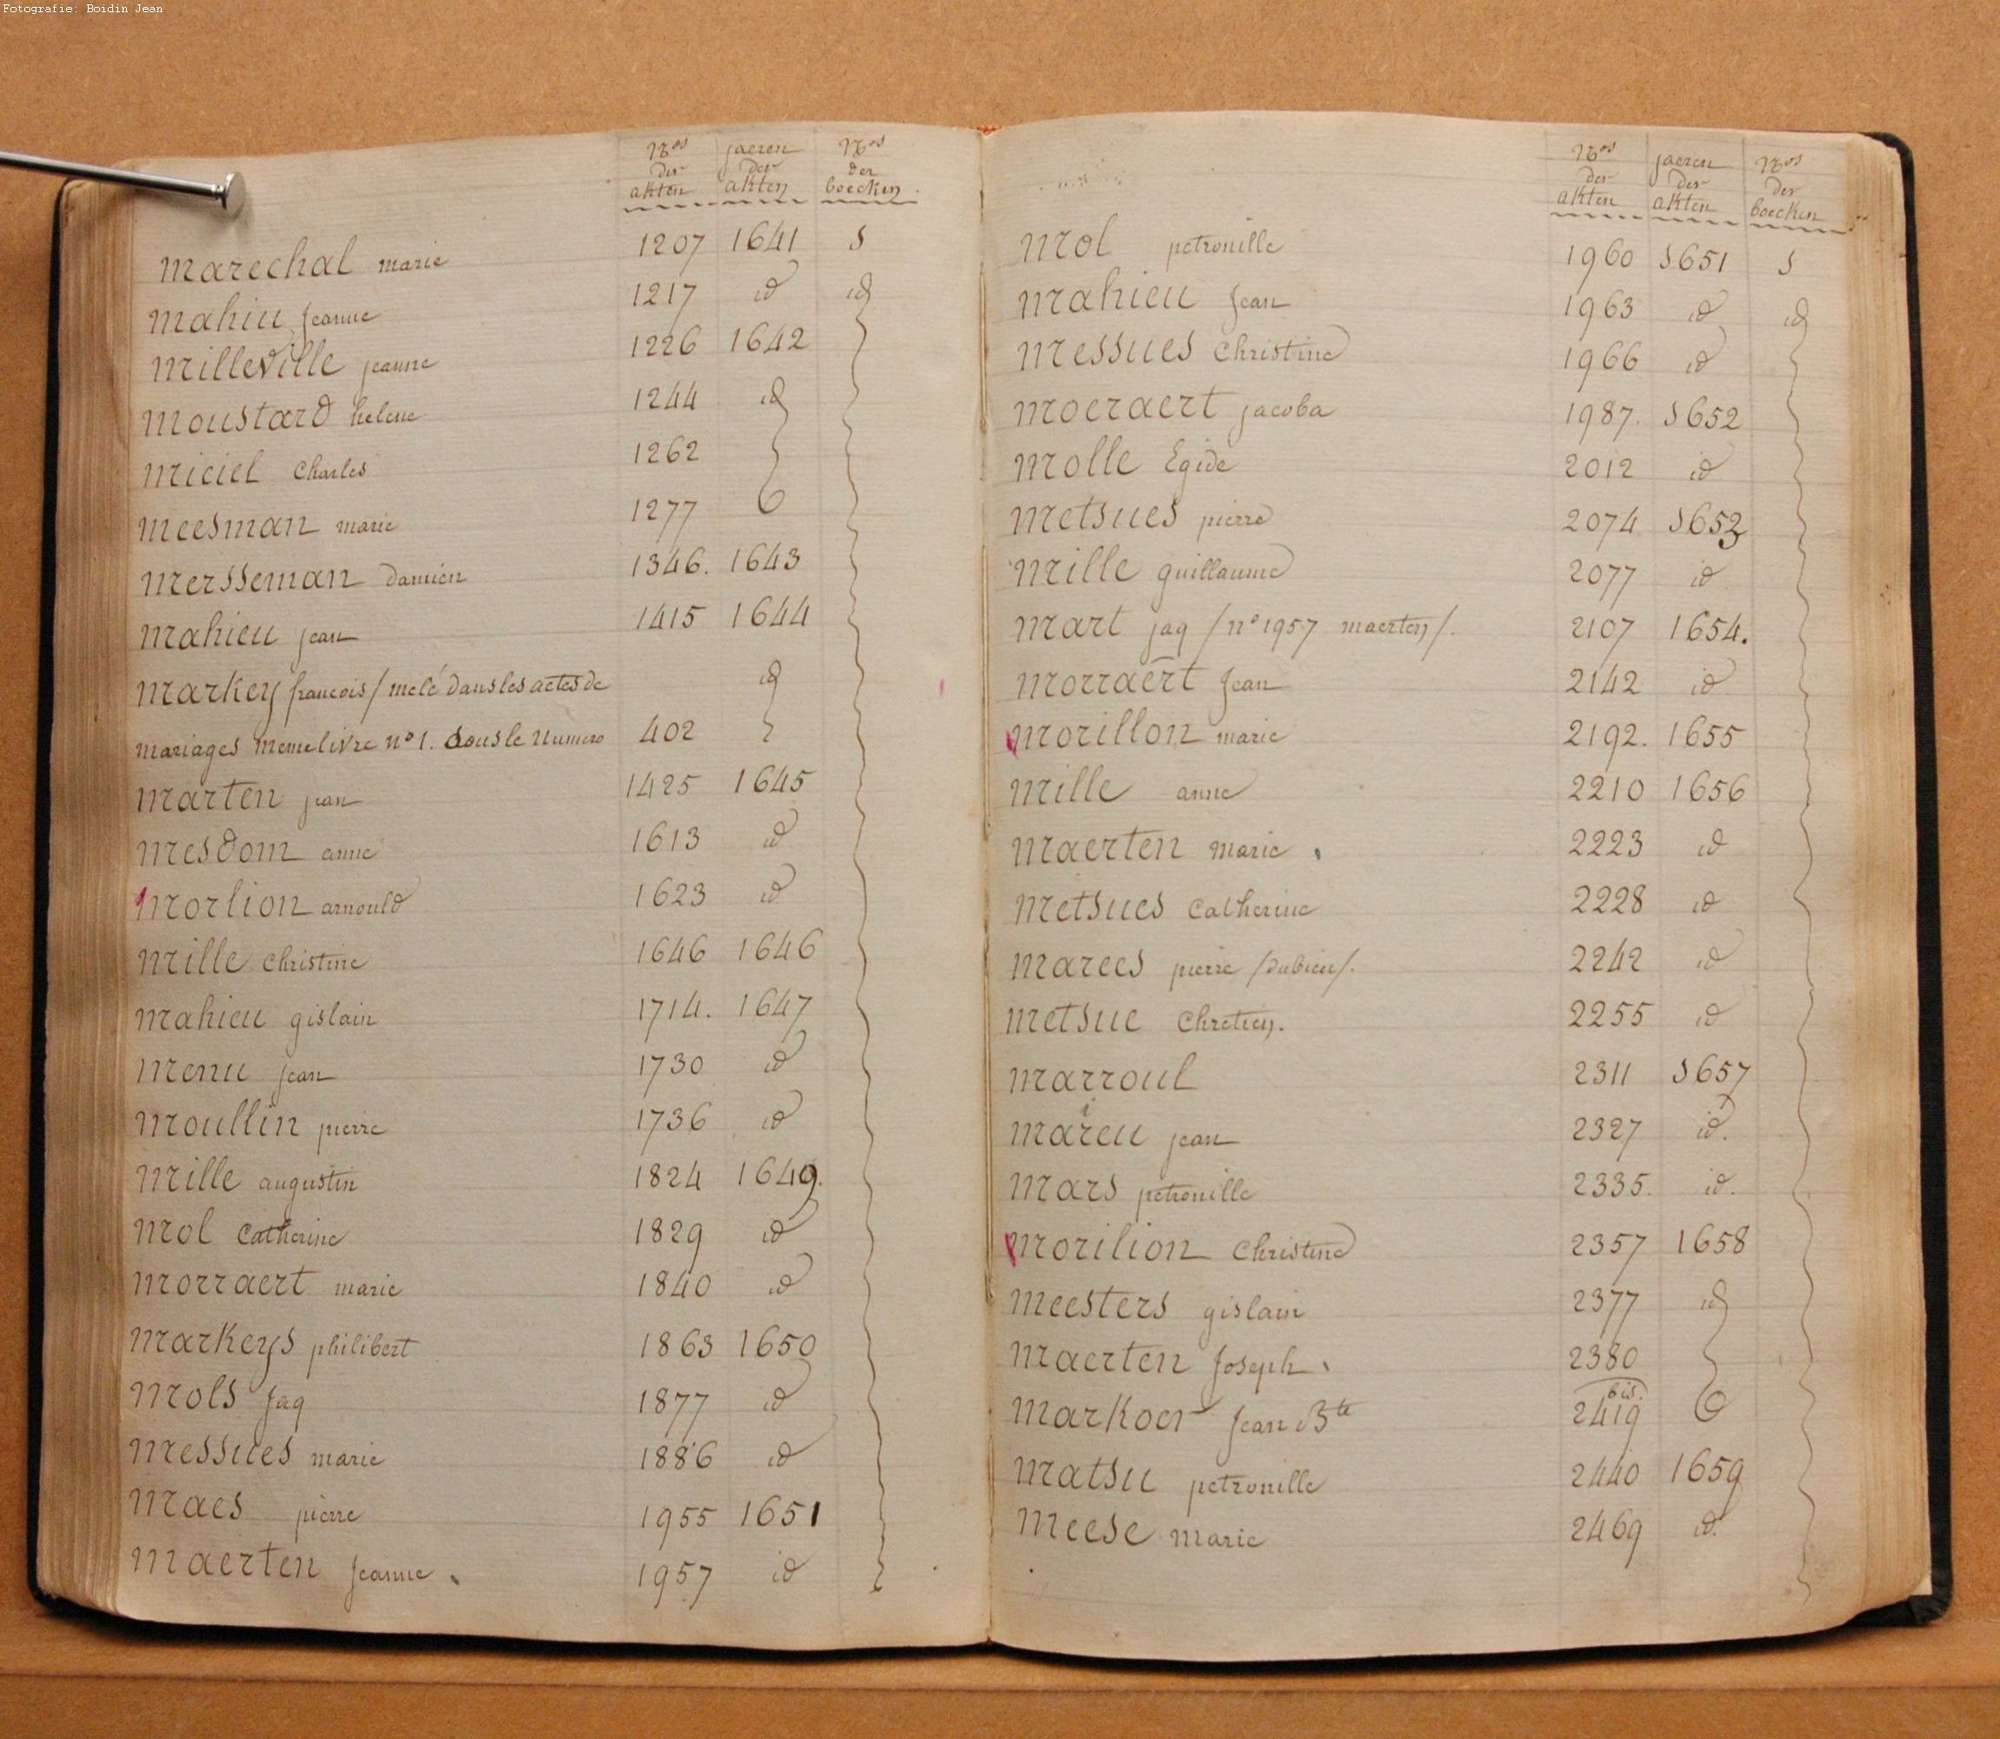 Fotografie: Boidin Jean
Nos der akten jaeren der akten Nos der boecken.
marechal marie 1207 1641 1
mahiu jeanne 1217 id id
milleville jeanne 1226 1642
moustard helene 1244 id
miciel Charles 1262
meesman marie 1277
mersseman Damien 1346. 1643
mahieu jean 1415 1644
markey francois / melé dans les actes de id
mariages meme livre n° 1. sous le numero 402
marten jean 1425 1645
mesdom anne 1613 id
morlion arnould 1623 id
mille Christine 1646 1646
mahieu gislain 1714. 1647
menu jean 1730 id
moullin pierre 1736 id
mille augustin 1824 1649.
mol Catherine 1829 id
morraert marie 1840 id
markeys philibert 1863 1650
mols jaq 1877 id
messues marie 1886 id
maes pierre 1955 1651
maerten jeanne. 1957 id
Nos der akten jaeren der akten Nos der boecken
mol petronille 1960 1651 1
mahieu jean 1963 id id
messues Christine 1966 id
moeraert jacoba 1987. 1652
molle Egide 2012 id
metsues pierre 2074 1653
mille guillaume 2077 id
mart jaq / n° 1957 maerten /. 2107 1654.
morraert jean 2142 id
morillon marie 2192. 1655
mille anne 2210 1656
maerten marie. 2223 id
metsues Catherine 2228 id
marees pierre / dubieu /. 2242 id
metsue Chretien. 2255 id
marroul 2311 1657
mareu jean 2327 id.
mars petronille 2335. id.
morilion Christine 2357 1658
meesters gislain 2377 id
maerten joseph. 2380
markoer jean Bte 2419 bis.
matsu petronille 2440 1659
meese marie 2469 id.